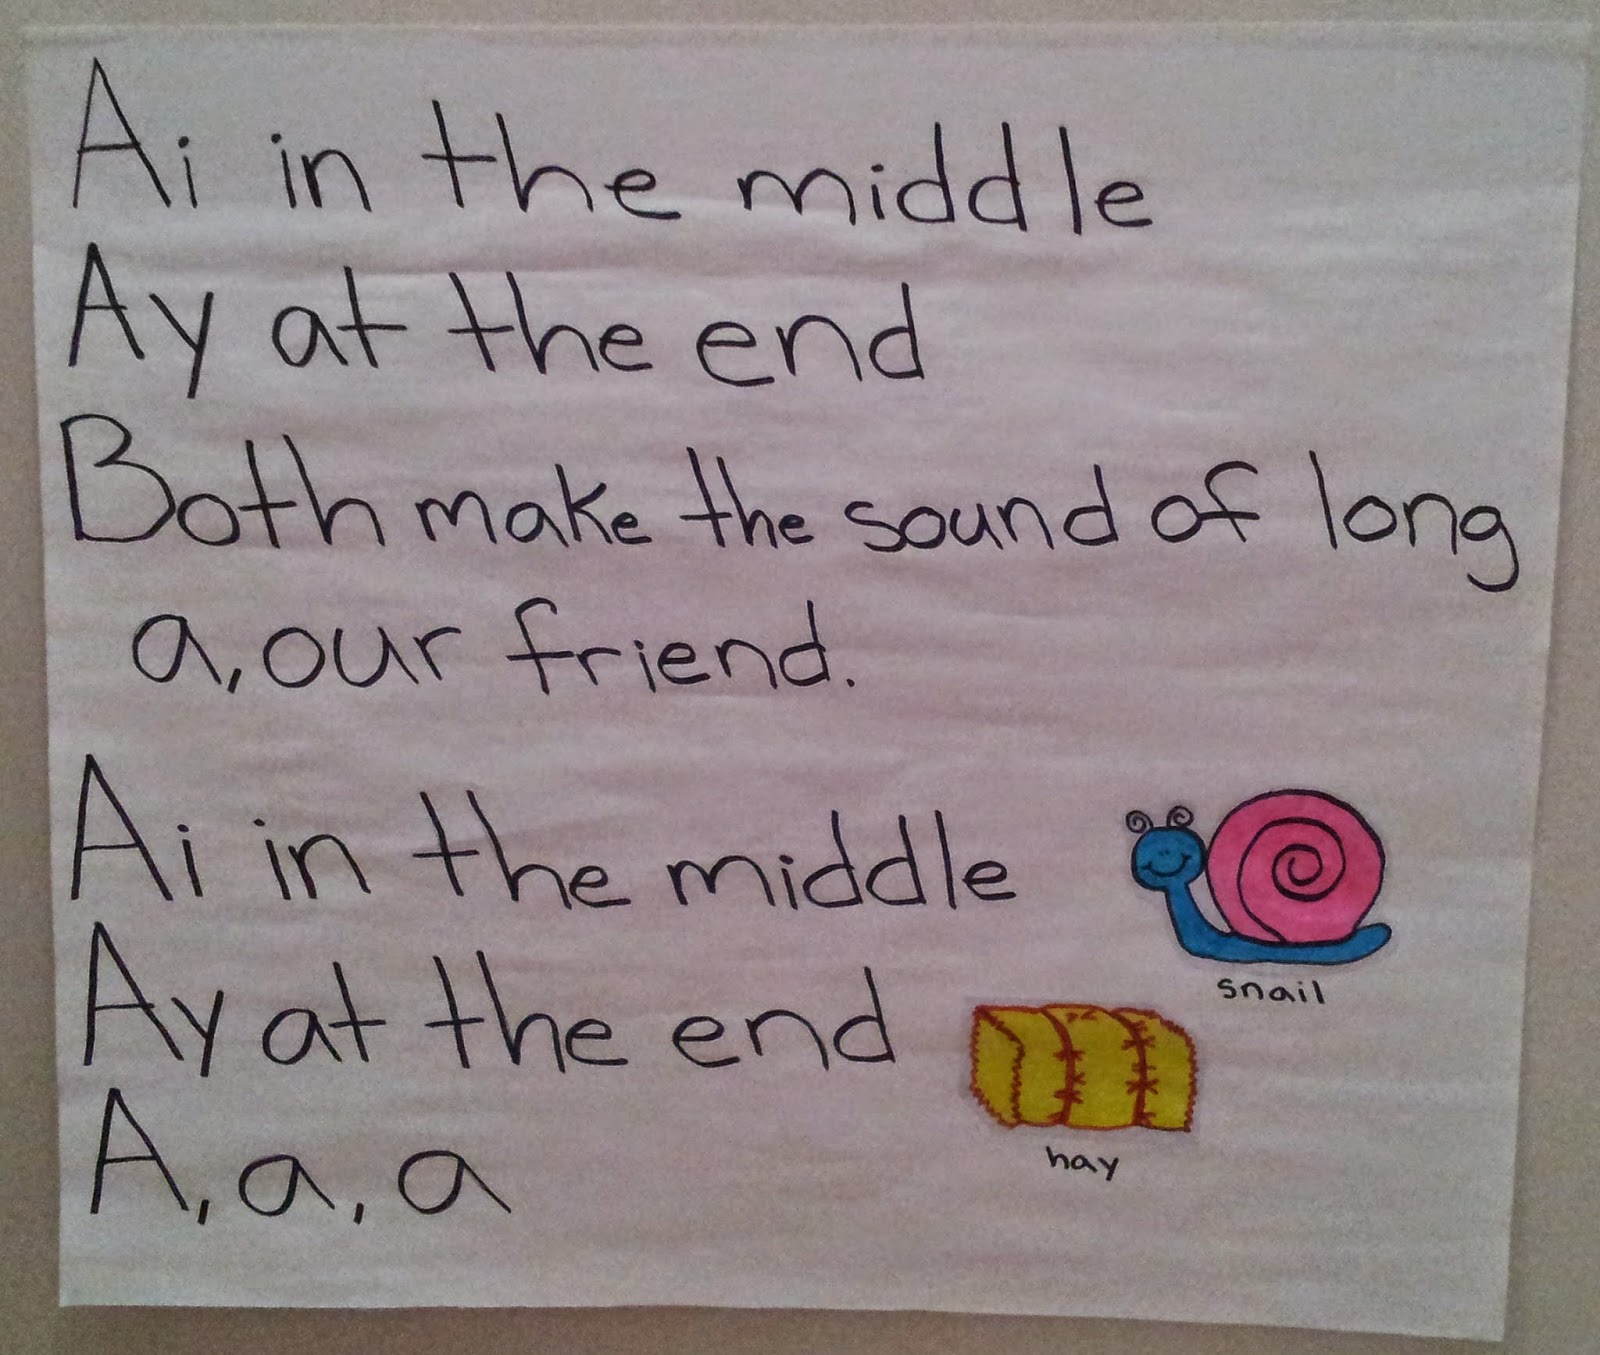 Ai in the middle
Ay at the end
Both make the sound of long
a, our friend.
Ai in the middle
Ay at the end
A, a, a
snail
hay